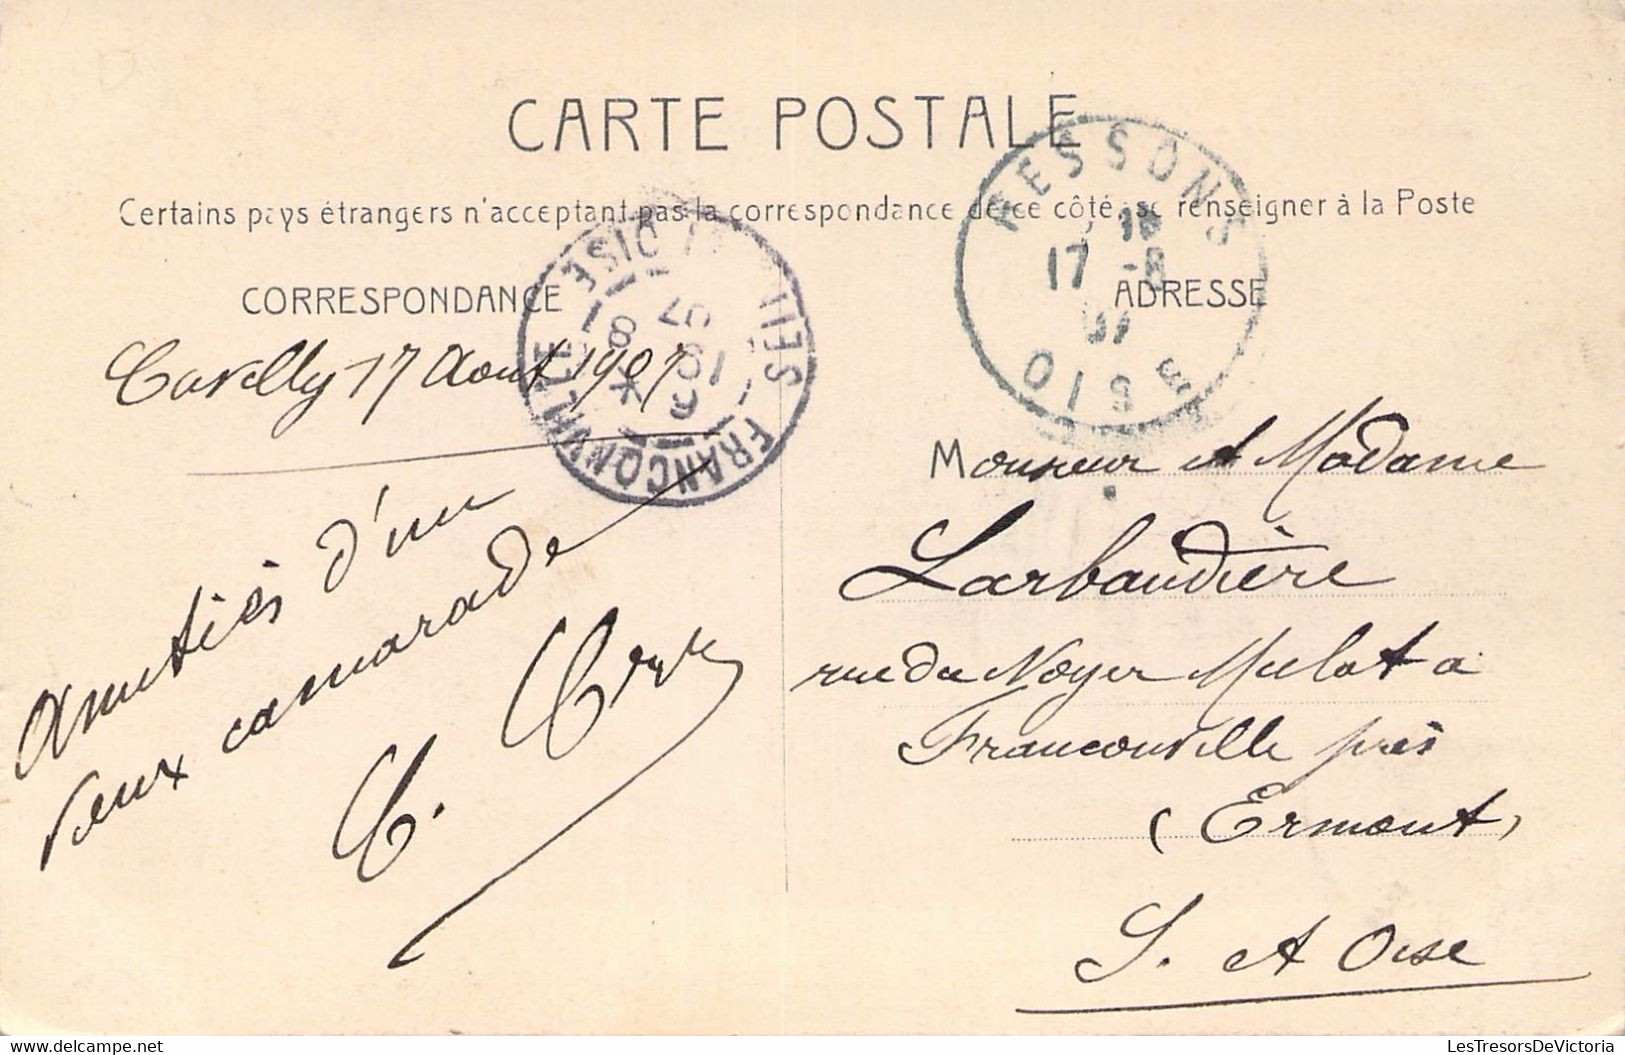 CARTE POSTALE
Certains pays étrangers n'acceptant pas la correspondance de ce côté, se renseigner à la Poste
CORRESPONDANCE
ADRESSE
RESSONS
17 -8
07
OISE
FRANCONVILLE
SEI
OISE
Cuvilly 17 Aout 1907
Amitiés d'un
vieux camarade
Monsieur et Madame
Larbaudière
rue du Noyer Mulot a
Franconville près
(Ermont)
S. et Oise
LesTresorsDeVictoria
www.delcampe.net
LesTresorsDeVictoria